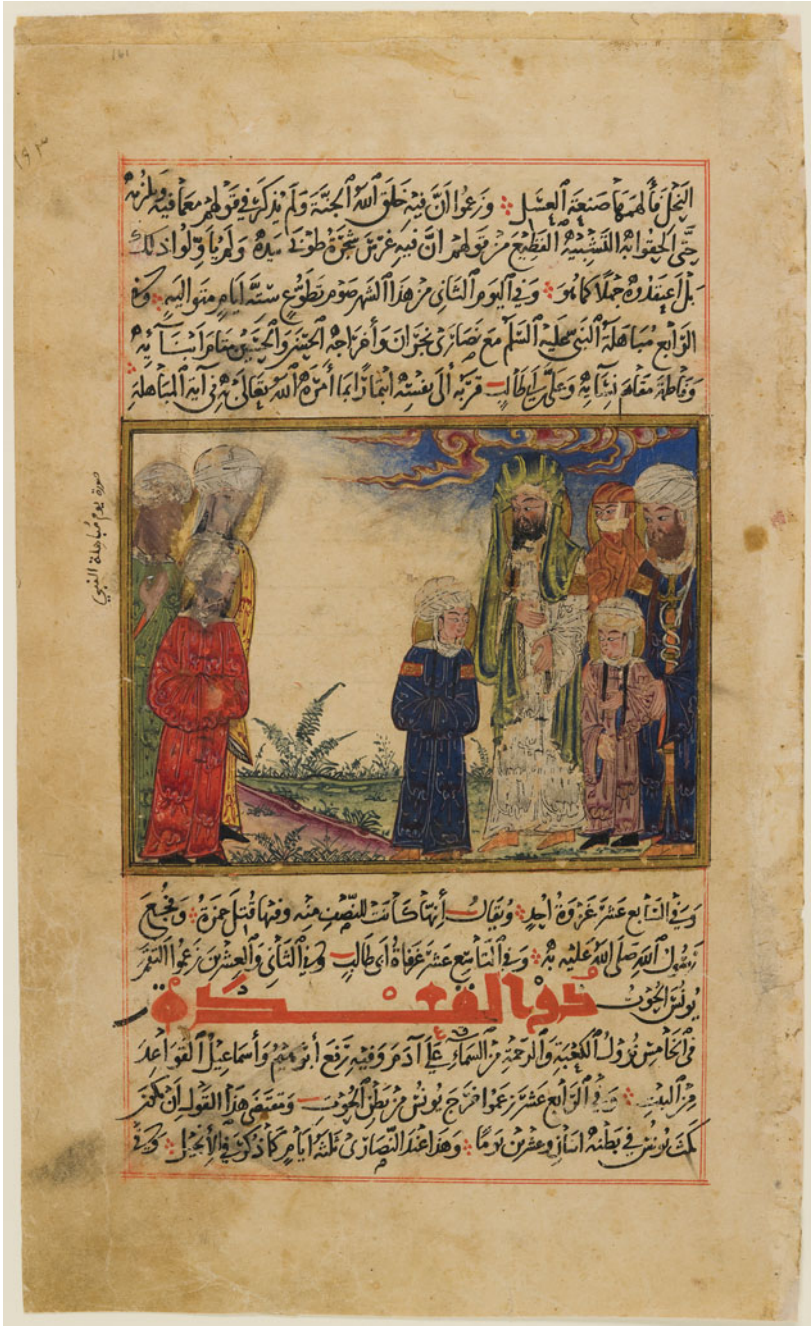 النحل فألهمها صنعة العسل وزعموا ان فيه خلق الله الجنة ولم يذكر في قولهم معما فيه ويلزمه
حتى الحقوا به التشبيه الفظيع من قولهم ان فيه غرس شجرة طوبى بيده ولم ياولوا ذلك
بل اعتقدوه جهلا كما هو وفي اليوم الثاني من هذا الشهر صوم تطوع ستة ايام متواليه وفي
الرابع مباهلة النبي عليه السلم مع نصارى نجران وأخراجه الحسن والحسين مقام ابنائه
وفاطمة مقام نسائه وعلي بن ابي طالب قربه الى نفسه ائتمارا بما أمره الله تعالى به في آية المباهلة
صورة يوم مباهلة النبي
وفي السابع عشر غزوة احد ويقال إنها كانت للنصف منه وفيها قتل حمزة وفجع
رسول الله صلى الله عليه به وفي التاسع عشر وفاة ابي طالب وفي الثاني والعشرين زعموا التقم
يونس الحوت
ذو القعدة
في الخامس نزول الكعبة والرحمة من السماء على آدم وفيه رفع ابرهيم وأسماعيل القواعد
من البيت وفي الرابع عشر زعموا خرج يونس من بطن الحوت ويقتضي هذا القول ان يكون
مكث يونس في بطنه اثنان وعشرين يوما وهذا عند النصارى ثلثة أيام كما ذكر في الأنجيل وفي